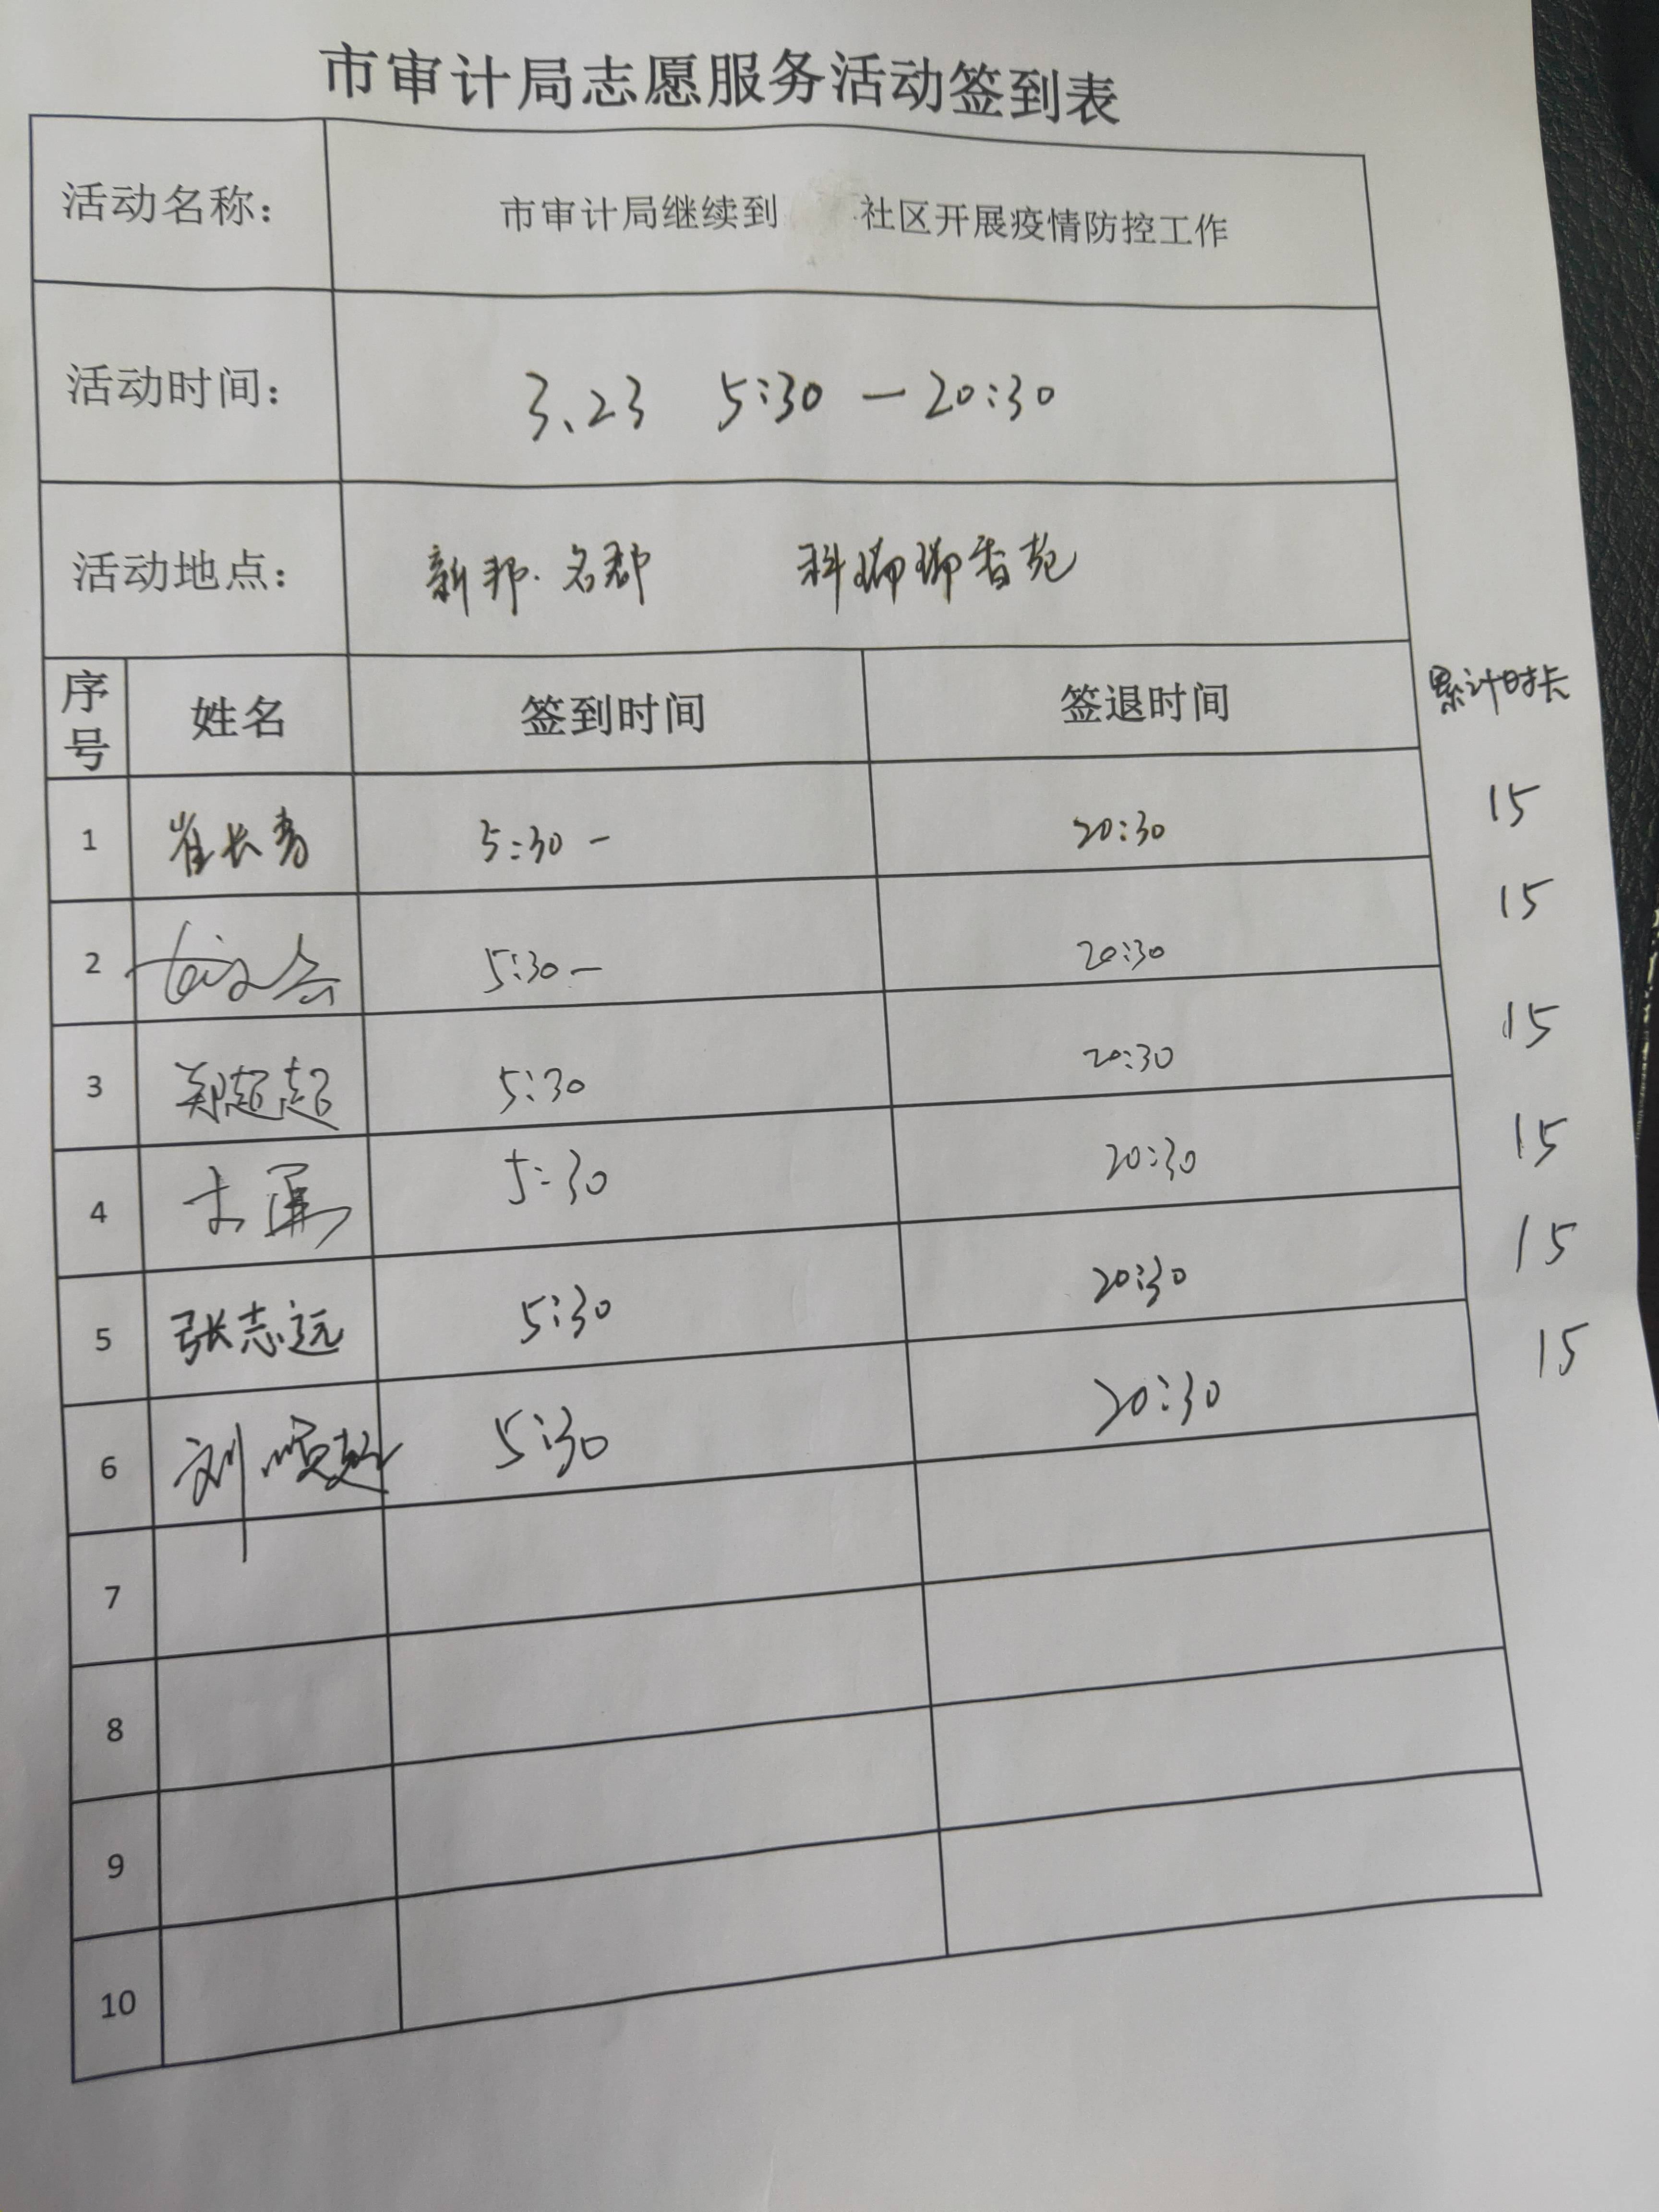 市审计局志愿服务活动签到表
活动名称： 市审计局继续到 社区开展疫情防控工作
活动时间： 3、23 5:30 — 20:30
活动地点： 新邦·名郡 科瑞瑞香苑
序号 姓名 签到时间 签退时间 累计时长
1 崔长青 5:30 - 20:30 15
2 5:30 - 20:30 15
3 郑超超 5:30 20:30 15
4 5:30 20:30 15
5 张志远 5:30 20:30 15
6 刘顺 5:30 20:30 15
7
8
9
10